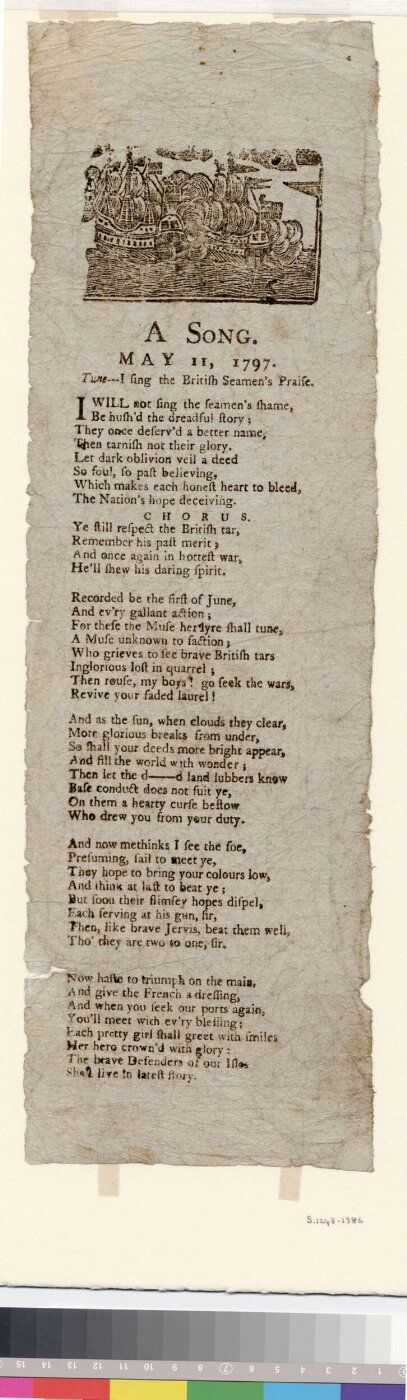 A SONG.
MAY 11, 1797.
Tune---I ſing the Britiſh Seamen's Praiſe.
I WILL not ſing the ſeamen's ſhame,
Be huſh'd the dreadful ſtory;
They once deſerv'd a better name,
Then tarniſh not their glory.
Let dark oblivion veil a deed
So foul, ſo paſt believing,
Which makes each honeſt heart to bleed,
The Nation's hope deceiving.
CHORUS.
Ye ſtill reſpect the Britiſh tar,
Remember his paſt merit;
And once again in hotteſt war,
He'll ſhew his daring ſpirit.
Recorded be the firſt of June,
And ev'ry gallant action;
For theſe the Muſe her lyre ſhall tune,
A Muſe unknown to faction;
Who grieves to ſee brave Britiſh tars
Inglorious loſt in quarrel;
Then rouſe, my boys! go ſeek the wars,
Revive your faded laurel!
And as the ſun, when clouds they clear,
More glorious breaks from under,
So ſhall your deeds more bright appear,
And fill the world with wonder;
Then let the d——d land lubbers know
Baſe conduct does not ſuit ye,
On them a hearty curſe beſtow
Who drew you from your duty.
And now methinks I ſee the foe,
Preſuming, ſail to meet ye,
They hope to bring your colours low,
And think at laſt to beat ye;
But ſoon their flimſey hopes diſpel,
Each ſerving at his gun, ſir,
Then, like brave Jervis, beat them well,
Tho' they are two to one, ſir.
Now haſte to triumph on the main,
And give the French a dreſſing,
And when you ſeek our ports again,
You'll meet with ev'ry bleſſing;
Each pretty girl ſhall greet with ſmiles
Her hero crown'd with glory:
The brave Defenders of our Iſles
Shall live in lateſt ſtory.
S.1247-1986
15 14 13 12 11 10 9 8 7 6 5 4 3 2 1